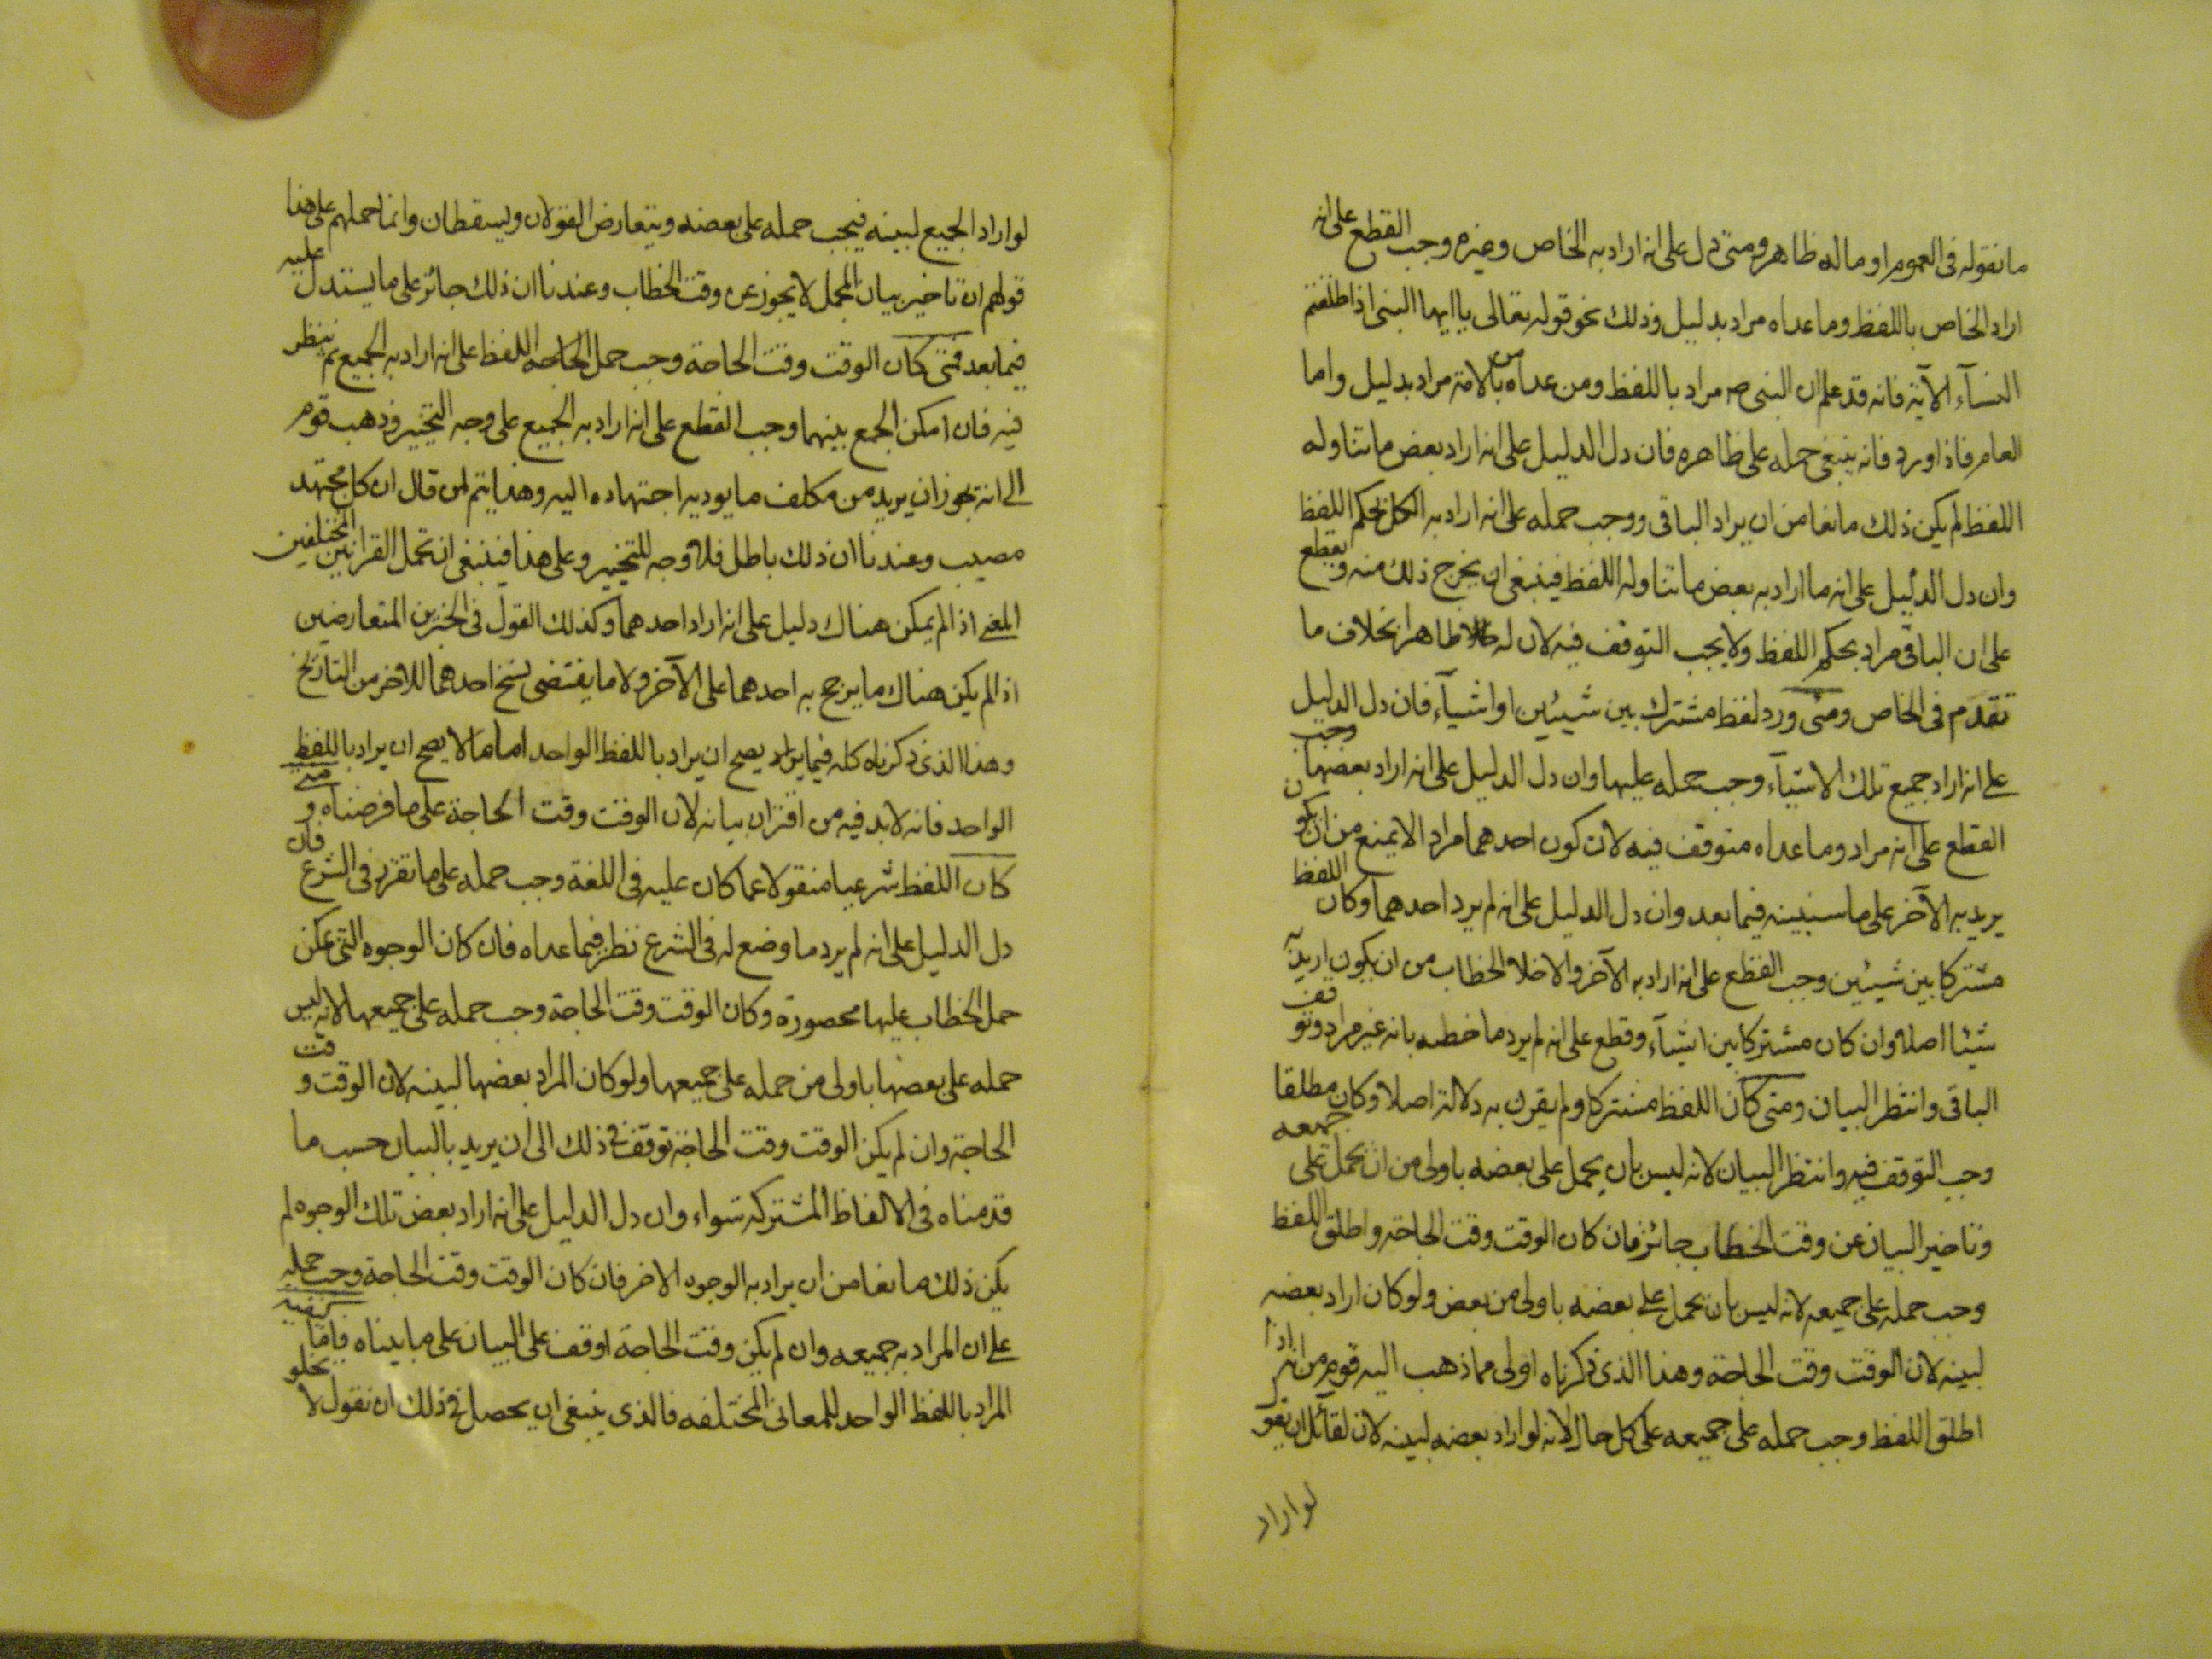 ما نقوله في العموم او ما له ظاهر ومتى دل على انه اراد به الخاص وغيره وجب القطع على انه
اراد الخاص باللفظ وما عداه مراد بدليل وذلك نحو قوله تعالى يا ايها النبى اذا طلقتم
النسآء الآية فانه قد علم ان النبى ص مراد باللفظ ومن عداه من الامة مراد بدليل واما
العام فاذا ورد فانه ينبغى حمله على ظاهره فان دل الدليل على انه اراد بعض ما تناوله
اللفظ لم يكن ذلك مانعا من ان يراد الباقى ووجب حمله على انه اراد به الكل بحكم اللفظ
وان دل الدليل على انه ما اراد به بعض ما تناوله اللفظ فينبغى ان يخرج ذلك منه ويقطع
على ان الباقى مراد بحكم اللفظ ولا يجب التوقف فيه لان له ظاهرا بخلاف ما
تقدم فى الخاص ومتى ورد لفظ مشترك بين شيئين او اشيآء فان دل الدليل
على انه اراد جميع تلك الاشيآء وجب حمله عليها وان دل الدليل على انه اراد بعضها وجب
القطع على انه مراد وما عداه متوقف فيه لان كون احدهما مرادا لا يمنع من ان يكون
يريد به الآخر على ما سنبينه فيما بعد وان دل الدليل على انه لم يرد احدهما وكان اللفظ
مشتركا بين شيئين وجب القطع على انه اراد به الآخر والا خلا الخطاب من ان يكون اريد به
شيئا اصلا وان كان مشتركا بين اشيآء وقطع على انه لم يرد ما خصه بانه غير مراد وتوقف
الباقى وانتظر البيان ومتى كان اللفظ مشتركا ولم يقرن به دلالة اصلا وكان مطلقا
وجب التوقف فيه وانتظر البيان لانه ليس بان يحمل على بعضه باولى من ان يحمل على جميعه
وتاخير البيان عن وقت الخطاب جائز فان كان الوقت وقت الحاجة واطلق اللفظ
وجب حمله على جميعه لانه ليس بان يحمل على بعضه باولى من بعض ولو كان اراد بعضه
لبينه لان الوقت وقت الحاجة وهذا الذى ذكرناه اولى مما ذهب اليه قوم من انه اذا
اطلق اللفظ وجب حمله على جميعه على كل حال لانه لو اراد بعضه لبينه لان لقائل ان يقول
لو اراد
لو اراد الجميع لبينه فيجب حمله على بعضه ويتعارض القولان ويسقطان وانما حملهم على هذا
قولهم ان تاخير بيان المجمل لا يجوز عن وقت الخطاب وعندنا ان ذلك جائز على ما يستدل عليه
فيما بعد فمتى كان الوقت وقت الحاجة وجب حمل اللفظ على انه اراد به الجميع ثم ينظر
فيه فان امكن الجمع بينهما وجب القطع على انه اراد به الجميع على وجه التخيير وذهب قوم
الى انه يجوز ان يريد من مكلف ما يوديه اجتهاده اليه وهذا يتم لمن قال ان كل مجتهد
مصيب وعندنا ان ذلك باطل فلا وجه للتخيير وعلى هذا فينبغى ان تحمل القرائتين المختلفين
المعنى اذا لم يمكن هناك دليل على انه اراد احدهما وكذلك القول فى الخبرين المتعارضين
اذا لم يكن هناك ما يرجح به احدهما على الآخر ولا ما يقتضى نسخ احدهما للاخر من التاريخ
وهذا الذى ذكرناه كله فيما يصح ان يراد باللفظ الواحد اما ما لا يصح ان يراد باللفظ
الواحد فانه لا بد فيه من اقتران بيانه لان الوقت وقت الحاجة على ما فرضناه ومتى
كان اللفظ شرعيا منقولا عما كان عليه فى اللغة وجب حمله على ما تقرر فى الشرع فان
دل الدليل على انه لم يرد ما وضع له فى الشرع نظر فيما عداه فان كان الوجوه التى يمكن
حمل الخطاب عليها محصورة وكان الوقت وقت الحاجة وجب حمله على جميعها لانه ليس
حمله على بعضها باولى من حمله على جميعها ولو كان المراد بعضها لبينه لان الوقت وقت
الحاجة وان لم يكن الوقت وقت الحاجة توقف فى ذلك الى ان يريد بالبيان حسب ما
قدمناه فى الالفاظ المشتركة سواء وان دل الدليل على انه اراد بعض تلك الوجوه لم
يكن ذلك مانعا من ان يراد به الوجوه الاخر فان كان الوقت وقت الحاجة وجب حمله
على ان المراد به جميعه وان لم يكن وقت الحاجة اوقف على البيان على ما بيناه فاما كيفية
المراد باللفظ الواحد للمعانى المختلفه فالذى ينبغى ان يحصل فى ذلك ان نقول لا يخلو